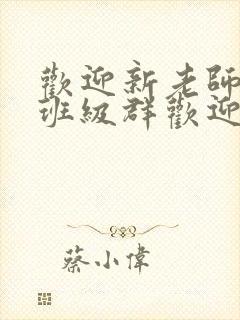 歡迎新老師
班級群歡迎
蔡小偉